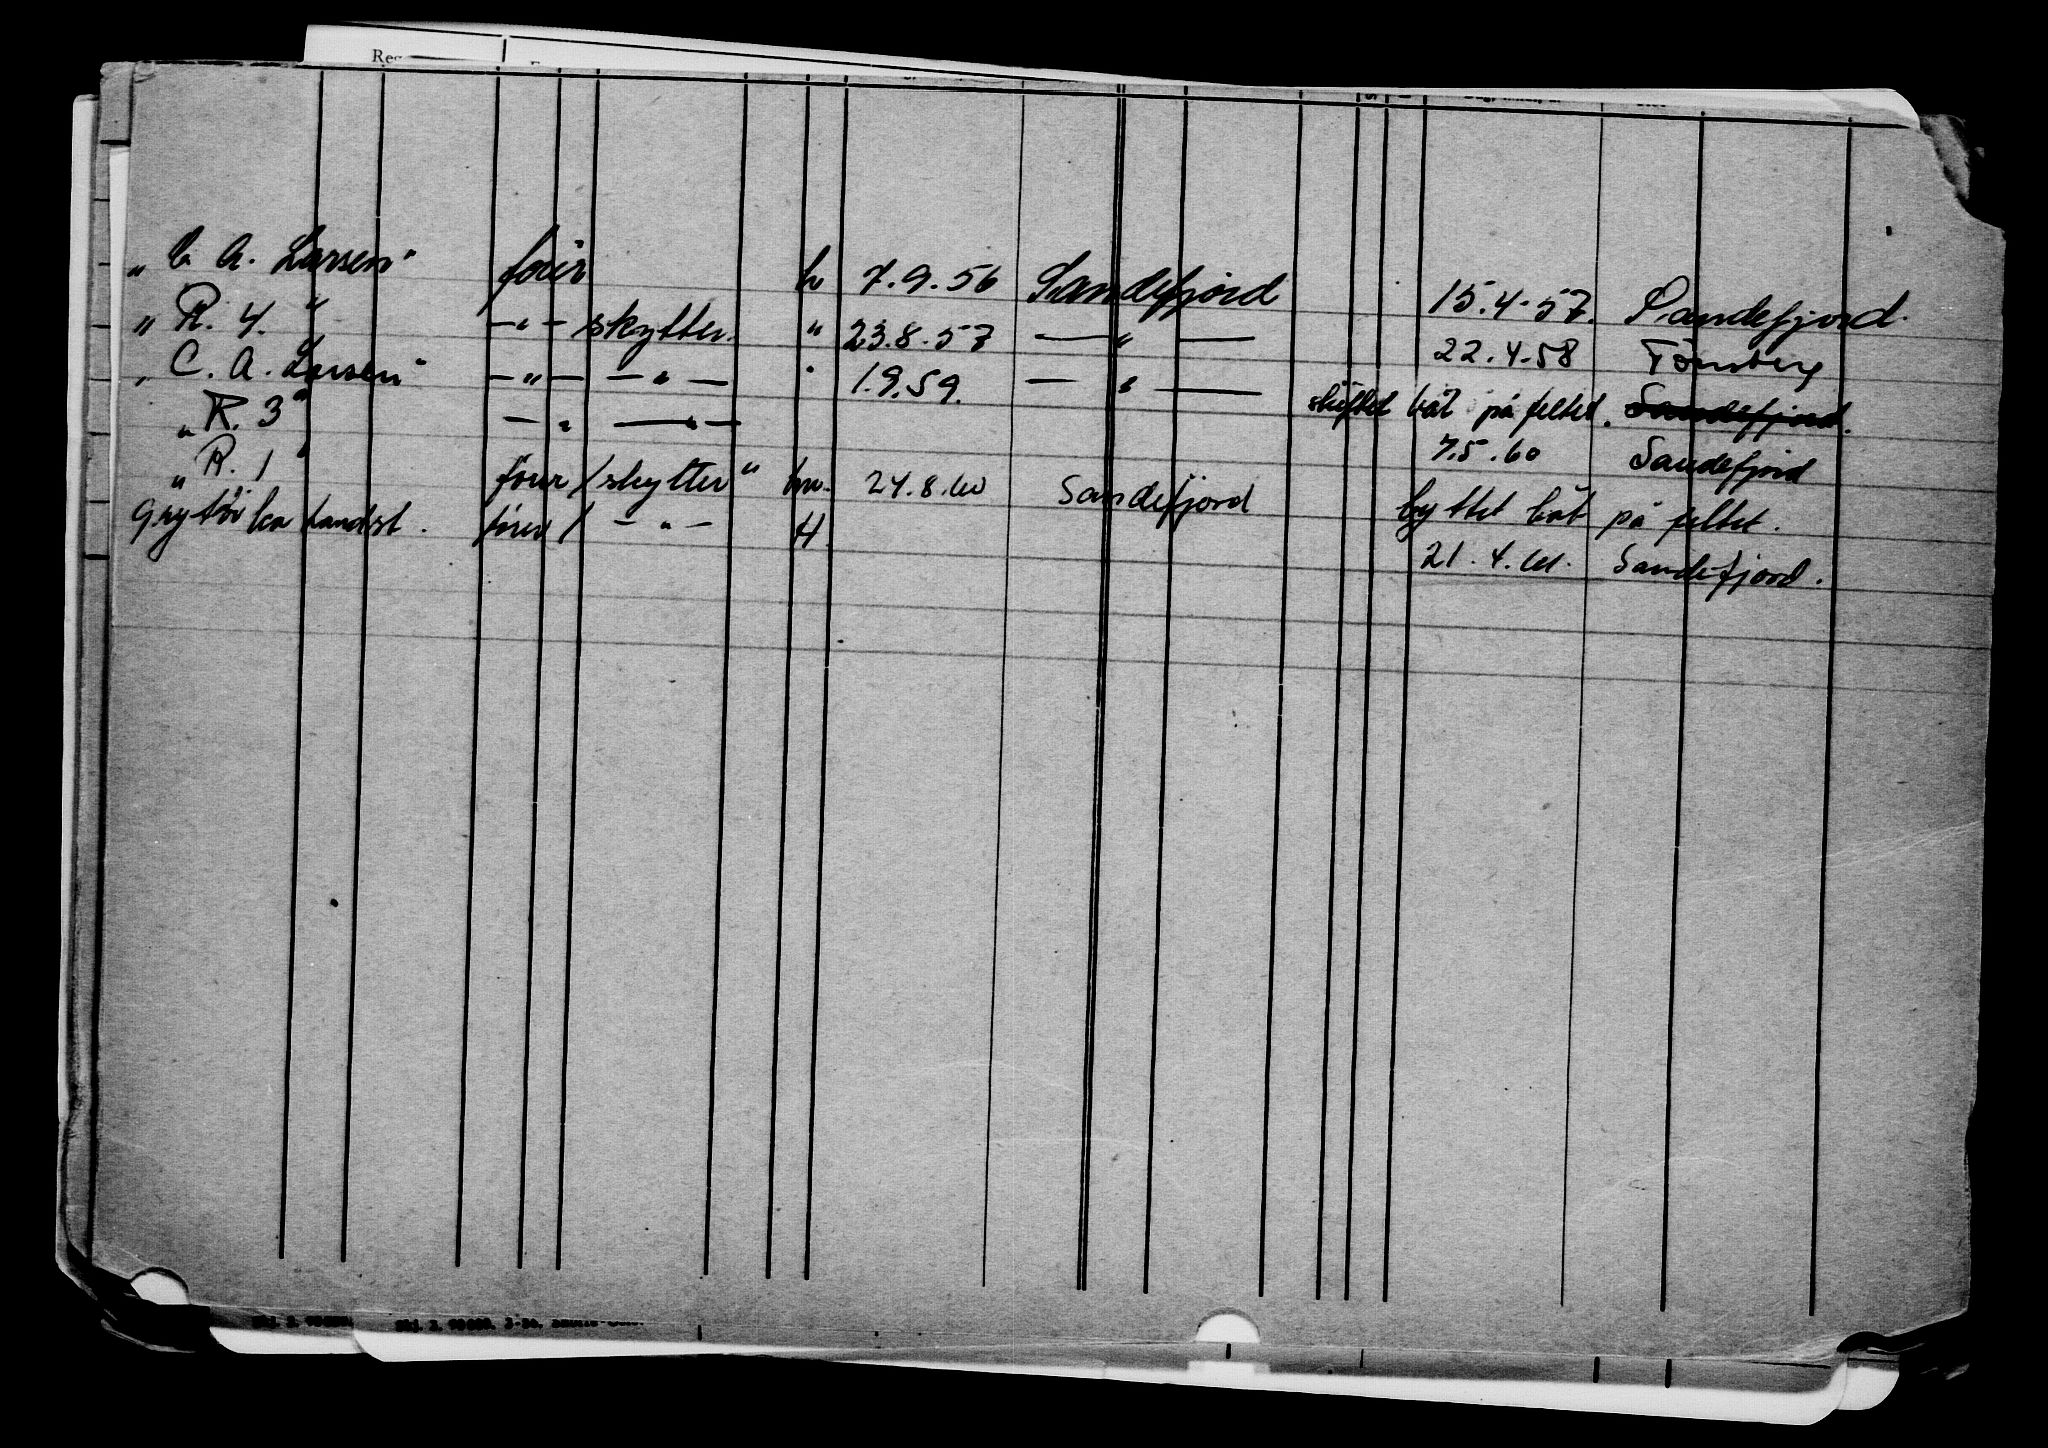 Reg
„ C. A. Larsen" fører h 7.9.56 Sandefjord 15.4.57. Sandefjord.
„ R. 4. " — " — skytter. " 23.8.57 — " — 22.4.58 Tönsberg
„ C. A. Larsen" — " — — " — " 1.9.59. — " — skiftet båt på feltet. Sandefjord.
„ R. 3" — " — — " — 7.5.60 Sandefjord
„ R. 1" / skytter" hv. 24.8.60 Sandefjord byttet båt på feltet.
landst. / — " — H. 21.4.61. Sandefjord.